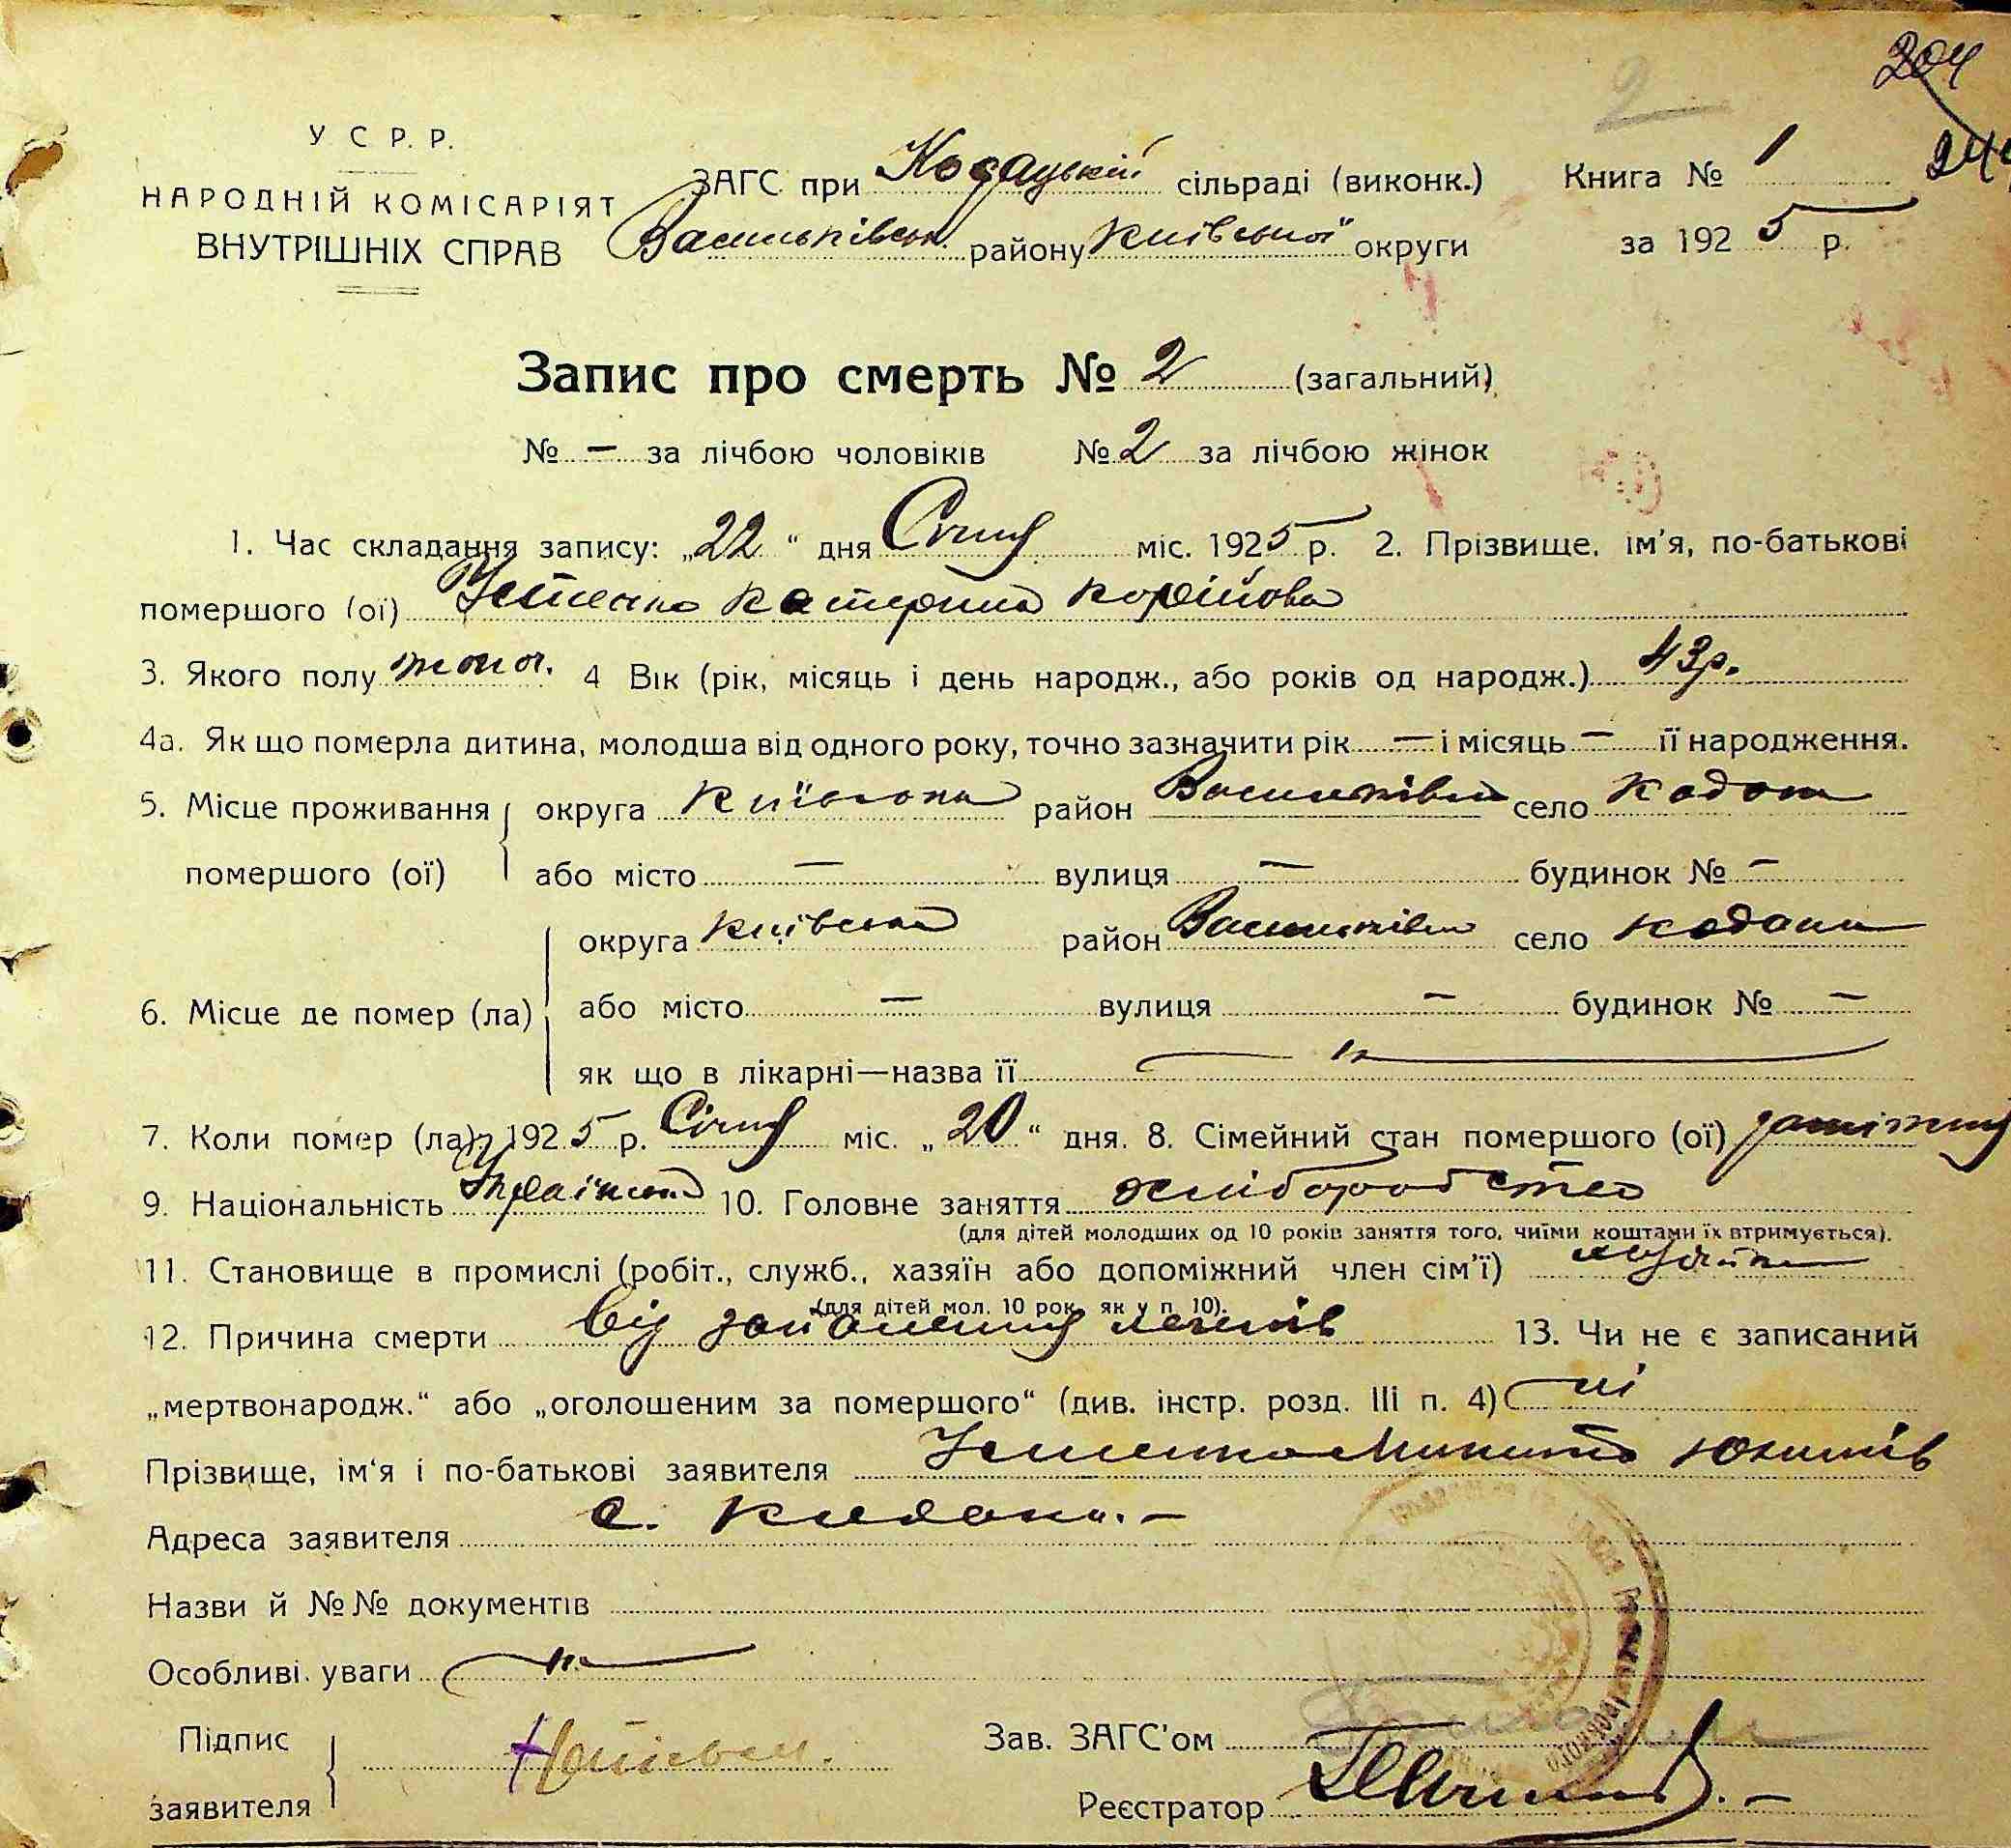 204
2
244
У С Р. Р.
НАРОДНІЙ КОМІСАРІЯТ
ВНУТРІШНІХ СПРАВ
ЗАГС при Кодацькій сільраді (виконк.) Книга № 1
Васильківськ. району Київської округи за 1925 р.
Запис про смерть № 2 (загальний)
№ — за лічбою чоловіків № 2 за лічбою жінок
1. Час складання запису: „22“ дня Січня міс. 1925 р. 2. Прізвище, ім'я, по-батькові
помершого (ої) Устенко Катерина Корнійова
3. Якого полу жіноч. 4 Вік (рік, місяць і день народж., або років од народж.) 43 р.
4а. Як що померла дитина, молодша від одного року, точно зазначити рік — і місяць — її народження.
5. Місце проживання округа Київська район Васильків село Кодаки
помершого (ої) або місто — вулиця — будинок № —
округа Київська район Васильків село Кодаки
6. Місце де помер (ла) або місто — вулиця — будинок № —
як що в лікарні—назва її
7. Коли помер (ла) 1925 р. Січня міс. „20“ дня. 8. Сімейний стан помершого (ої) заміжня
9. Національність Українка 10. Головне заняття хліборобство
(для дітей молодших од 10 років заняття того, чиїми коштами їх втримується).
11. Становище в промислі (робіт., служб., хазяїн або допоміжний член сім'ї) хазяйка
(для дітей мол. 10 рок. як у п. 10).
12. Причина смерти від запалення легенів 13. Чи не є записаний
„мертвонародж.“ або „оголошеним за помершого“ (див. інстр. розд. III п. 4) ні
Прізвище, ім'я і по-батькові заявителя Устенко Микита Юхимів
Адреса заявителя с. Кодаки. —
Назви й №№ документів
Особливі уваги
Підпис
заявителя
Зав. ЗАГС'ом
Реєстратор